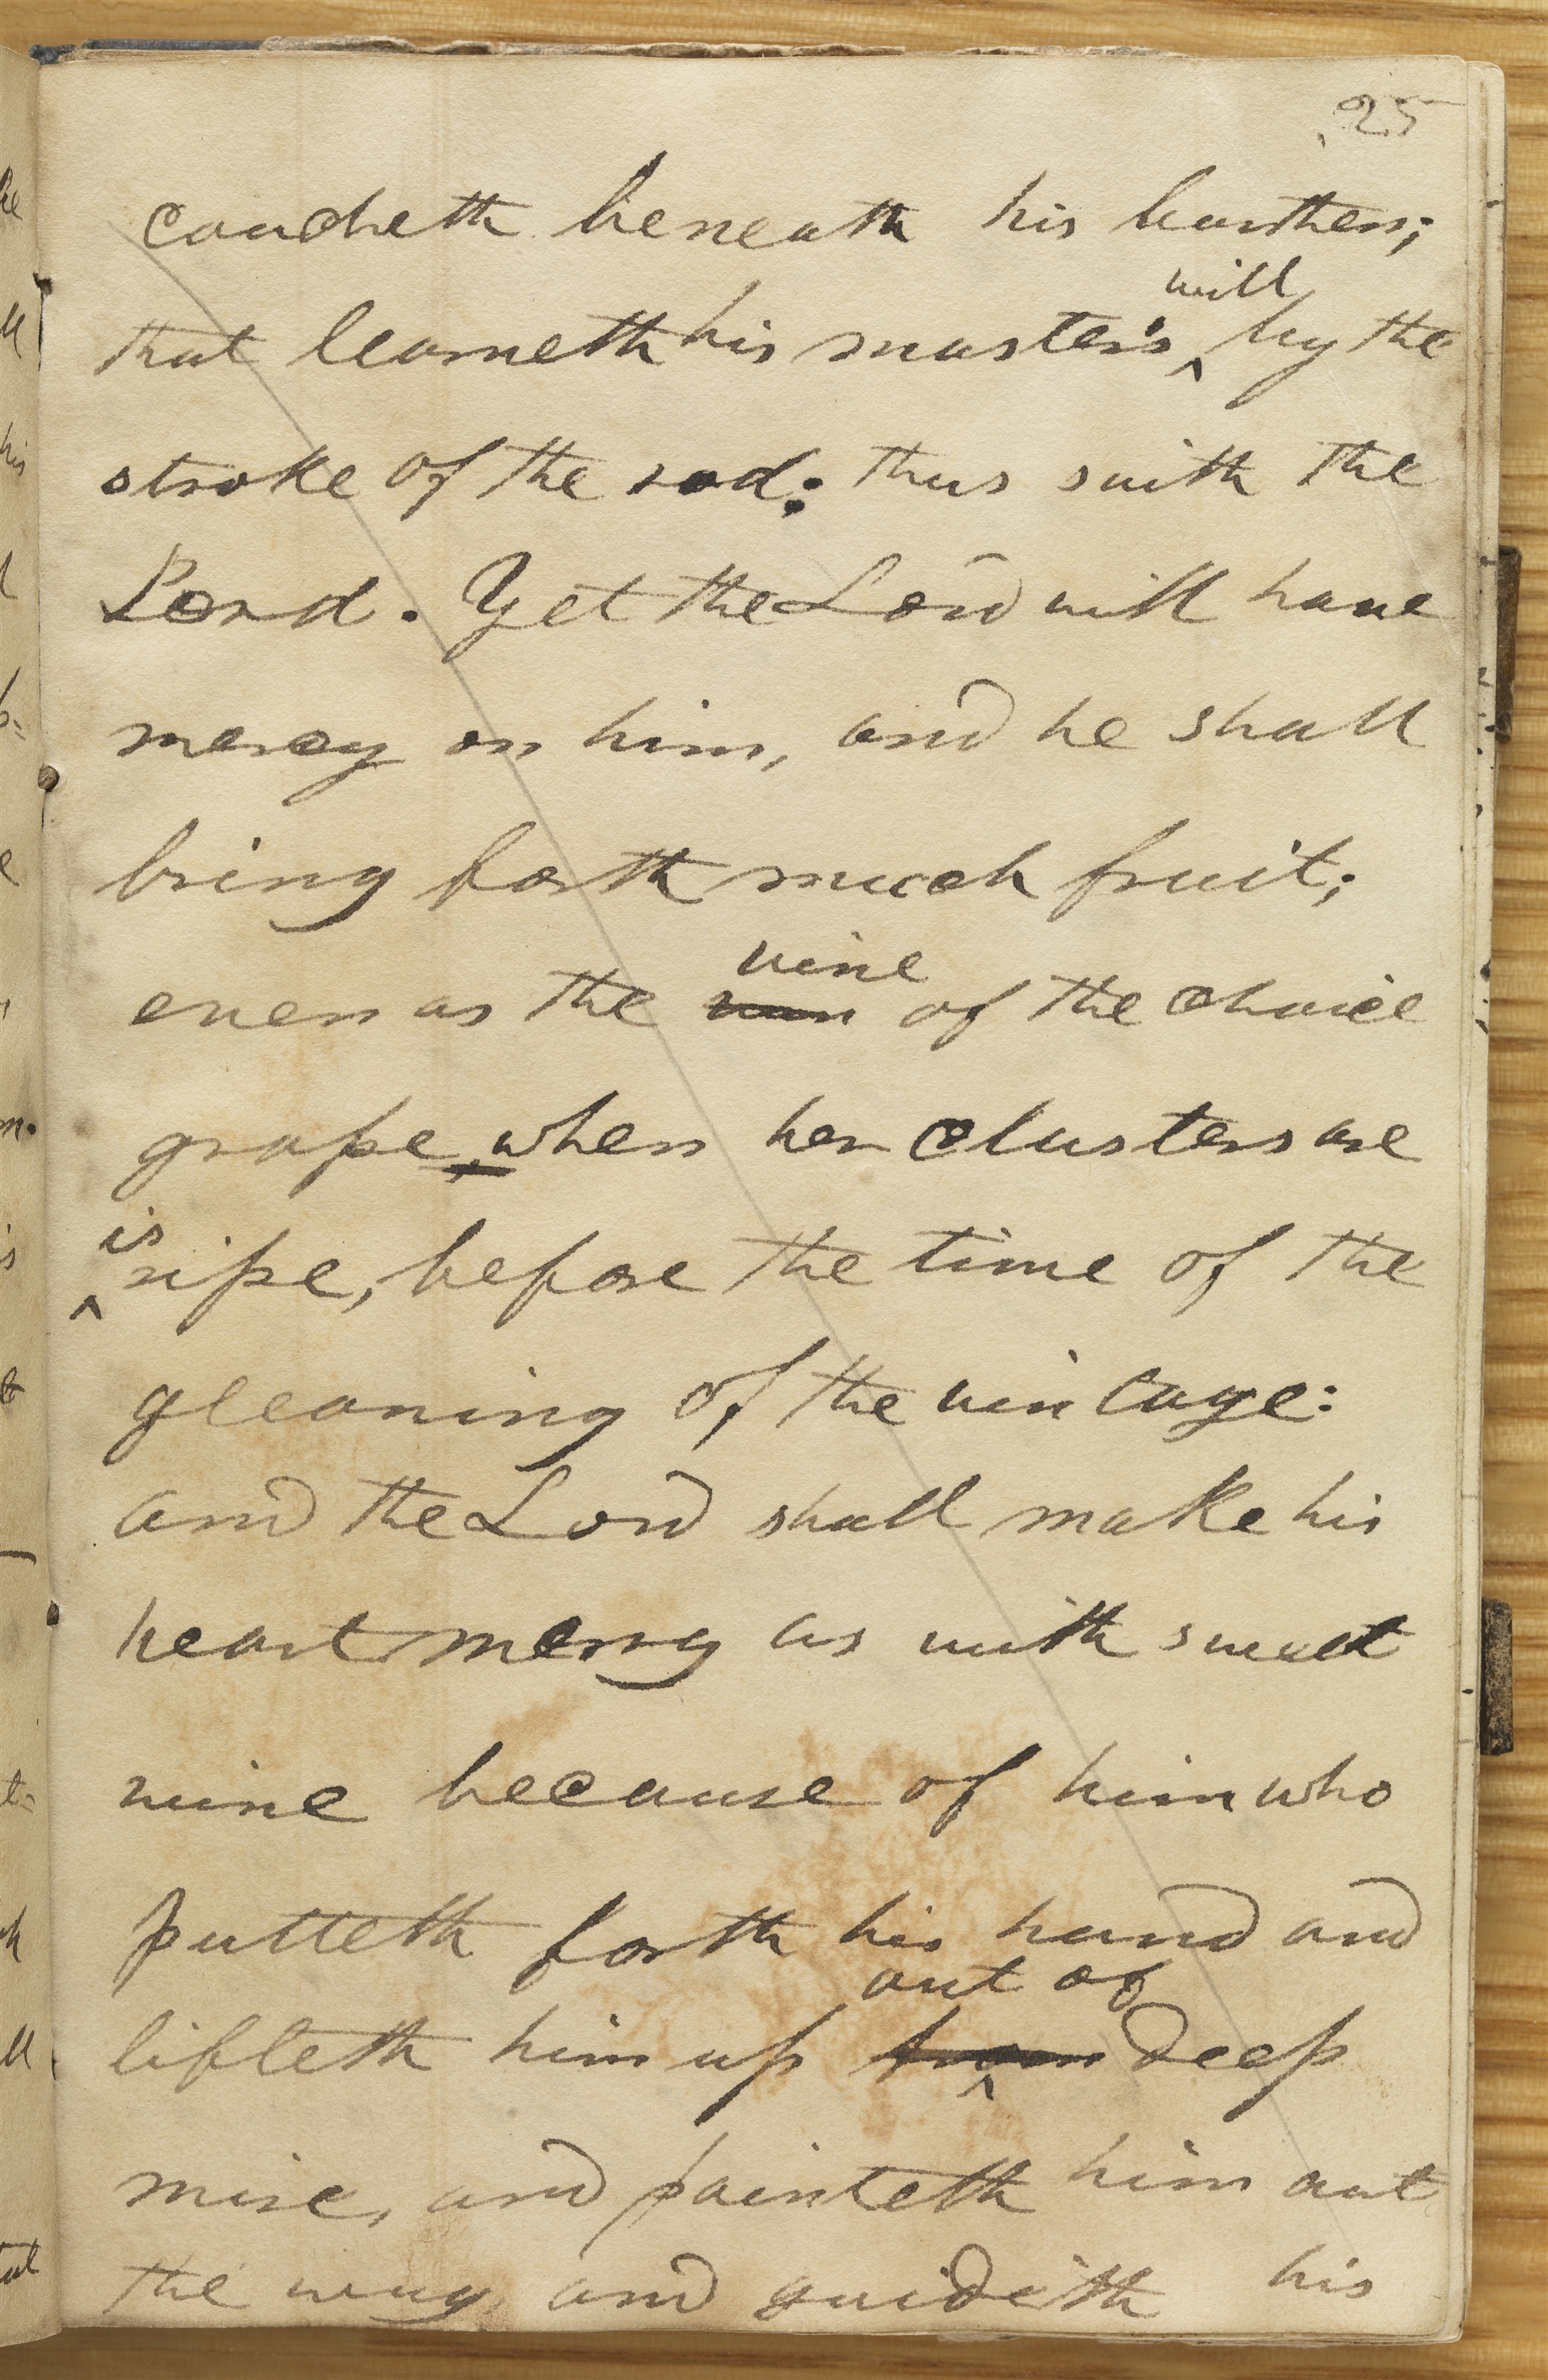 25
coucheth beneath his burthen;
will
that learneth his master's ‸ by the
stroke of the rod: thus saith the
Lord. Yet the Lord will have
mercy on him, and he shall
bring forth much fruit;
vine
even as the of the choice
grape, when her clusters are
is
‸ ripe, before the time of the
gleaning of the vintage:
and the Lord shall make his
heart merry as with sweet
wine because of him who
putteth forth his hand and
out of
lifteth him up from ‸ deep
mire, and pointeth him out
the way and guideth his